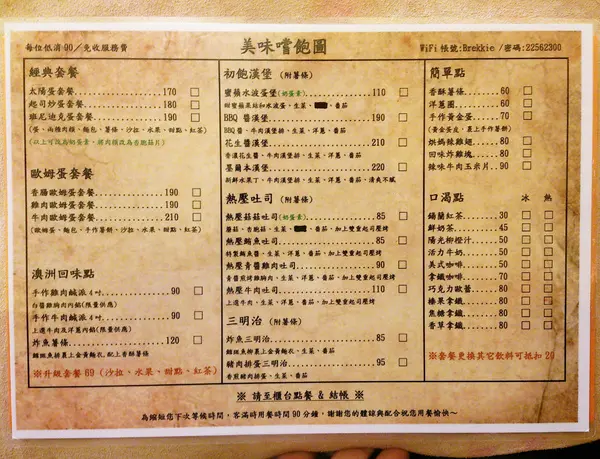 每位低消90/免收服務費
美味嚐飽圖
WiFi 帳號:Brekkie /密碼:22562300
經典套餐
太陽蛋套餐 170 □
起司炒蛋套餐 180 □
班尼迪克蛋套餐 190 □
(蛋、兩種肉類、麵包、薯條、沙拉、水果、甜點、紅茶)
(以上可改為奶蛋素,將肉類改為杏鮑菇片)
歐姆蛋套餐
香腸歐姆蛋套餐 190 □
雞肉歐姆蛋套餐 190 □
牛肉歐姆蛋套餐 210 □
(歐姆蛋、麵包、手作薯餅、沙拉、水果、甜點、紅茶)
澳洲回味點
手作雞肉鹹派4吋 90 □
白醬雞胸肉內餡(限量供應)
手作牛肉鹹派4吋 90 □
上選牛肉及洋蔥內餡(限量供應)
炸魚薯條 120 □
鯛魚柳裹上金黃麵衣,配上香酥薯條
※升級套餐 69 (沙拉、水果、甜點、紅茶)
初飽漢堡 (附薯條)
蜜蘋水波蛋堡(奶蛋素) 110 □
甜蜜蘋果絲和水波蛋、生菜、番茄
BBQ 醬漢堡 190 □
BBQ 醬、牛肉漢堡排、生菜、洋蔥、番茄
花生醬漢堡 210 □
香濃花生醬、牛肉漢堡排、生菜、洋蔥、番茄
墨爾本漢堡 220 □
新鮮水果丁、牛肉漢堡排、生菜、洋蔥、番茄,清爽不膩
熱壓吐司 (附薯條)
熱壓菇菇吐司(奶蛋素) 85 □
蘑菇、杏鮑菇、生菜、番茄,加上雙重起司壓烤
熱壓鮪魚吐司 85 □
特製鮪魚醬、生菜、洋蔥、番茄、加上雙重起司壓烤
熱壓青醬雞肉吐司 90 □
青醬煎烤雞胸肉、生菜、洋蔥、番茄、加上雙重起司壓烤
熱壓牛肉吐司 110 □
上選牛肉、生菜、洋蔥、番茄、加上雙重起司壓烤
三明治 (附薯條)
炸魚三明治 85 □
鯛魚柳裹上金黃麵衣、生菜、番茄
豬肉排蛋三明治 95 □
香煎豬肉排蛋、生菜、番茄
簡單點
香酥薯條 60 □
洋蔥圈 60 □
手作黃金蛋 70 □
(黃金蛋皮,裹上手作薯餅)
烘媽辣雞翅 80 □
回味炸雞塊 80 □
辣味牛肉玉米片 90 □
口渴點 冰 熱
錫蘭紅茶 30 □ □
鮮奶茶 45 □ □
陽光柳橙汁 50 □ □
活力牛奶 50 □ □
美式咖啡 50 □ □
拿鐵咖啡 70 □ □
巧克力歐蕾 80 □ □
榛果拿鐵 80 □ □
焦糖拿鐵 80 □ □
香草拿鐵 80 □ □
※套餐更換其它飲料可抵扣 20
※ 請至櫃台點餐 & 結帳 ※
為縮短您下次等候時間,客滿時用餐時間90分鐘,謝謝您的體諒與配合祝您用餐愉快~